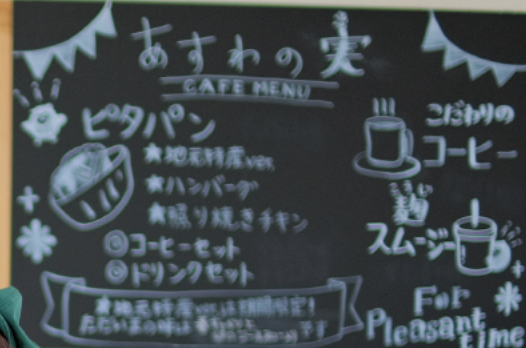 あすわの実
CAFE MENU
ピタパン
★地元特産ver.
★ハンバーグ
★照り焼きチキン
◎コーヒーセット
◎ドリンクセット
★地元特産ver.は期間限定!
ただいまの味は
です
こだわりの
コーヒー
こうじ
麹
スムージー
For
Pleasant
time